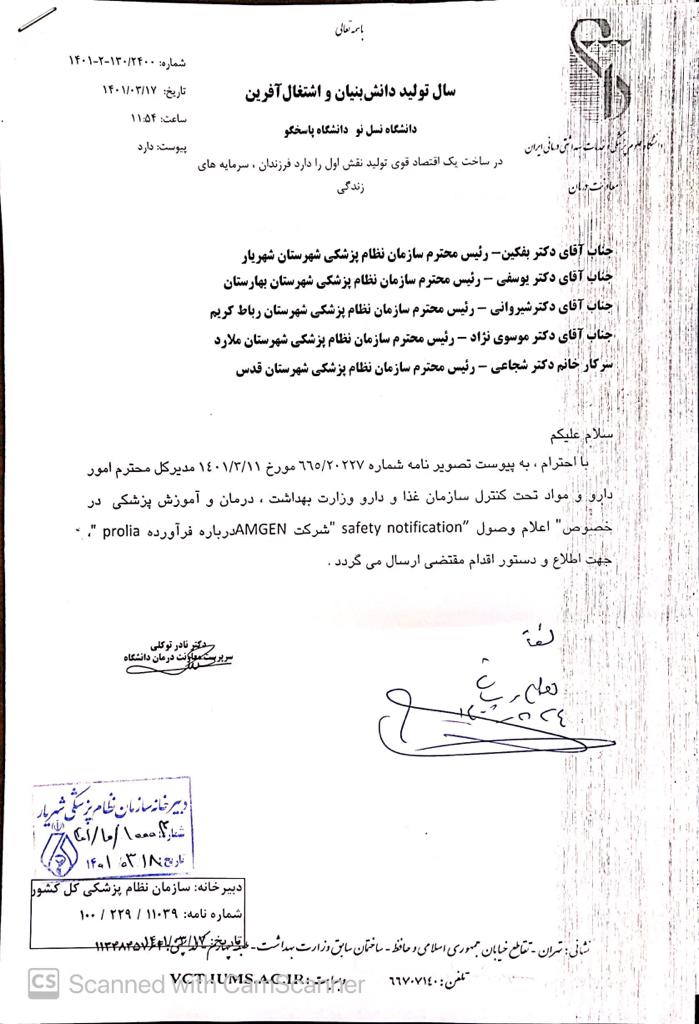 باسمه تعالی
شماره: ۱۴۰۱-۲-۱۳۰/۲۴۰۰
تاریخ: ۱۴۰۱/۰۳/۱۷
ساعت: ۱۱:۵۴
پیوست: دارد
سال تولید دانش‌بنیان و اشتغال‌آفرین
دانشگاه نسل نو دانشگاه پاسخگو
در ساخت یک اقتصاد قوی تولید نقش اول را دارد فرزندان ، سرمایه های
زندگی
دانشگاه علوم پزشکی و خدمات بهداشتی درمانی ایران
معاونت درمان
جناب آقای دکتر بفکین– رئیس محترم سازمان نظام پزشکی شهرستان شهریار
جناب آقای دکتر یوسفی – رئیس محترم سازمان نظام پزشکی شهرستان بهارستان
جناب آقای دکترشیروانی – رئیس محترم سازمان نظام پزشکی شهرستان رباط کریم
جناب آقای دکتر موسوی نژاد – رئیس محترم سازمان نظام پزشکی شهرستان ملارد
سرکار خانم دکتر شجاعی – رئیس محترم سازمان نظام پزشکی شهرستان قدس
سلام علیکم
با احترام ، به پیوست تصویر نامه شماره ۶۶۵/۲۰۲۲۷ مورخ ۱۴۰۱/۳/۱۱ مدیرکل محترم امور
دارو و مواد تحت کنترل سازمان غذا و دارو وزارت بهداشت ، درمان و آموزش پزشکی در
خصوص" اعلام وصول "safety notification "شرکت AMGENدرباره فرآورده prolia "،
جهت اطلاع و دستور اقدام مقتضی ارسال می گردد .
دکتر نادر توکلی
سرپرست معاونت درمان دانشگاه
دبیرخانه سازمان نظام پزشکی شهریار
شماره:
تاریخ:
دبیرخانه: سازمان نظام پزشکی کل کشور
شماره نامه: ۱۱۰۳۹ / ۲۲۹ / ۱۰۰
تاریخ: ۱۴۰۱/۰۳/۱۷
نشانی: تهران - تقاطع خیابان جمهوری اسلامی و حافظ - ساختمان سابق وزارت بهداشت -
تلفن: ۶۶۷۰۷۱۴۰ وب سایت: VCT.IUMS.AC.IR
CS Scanned with CamScanner